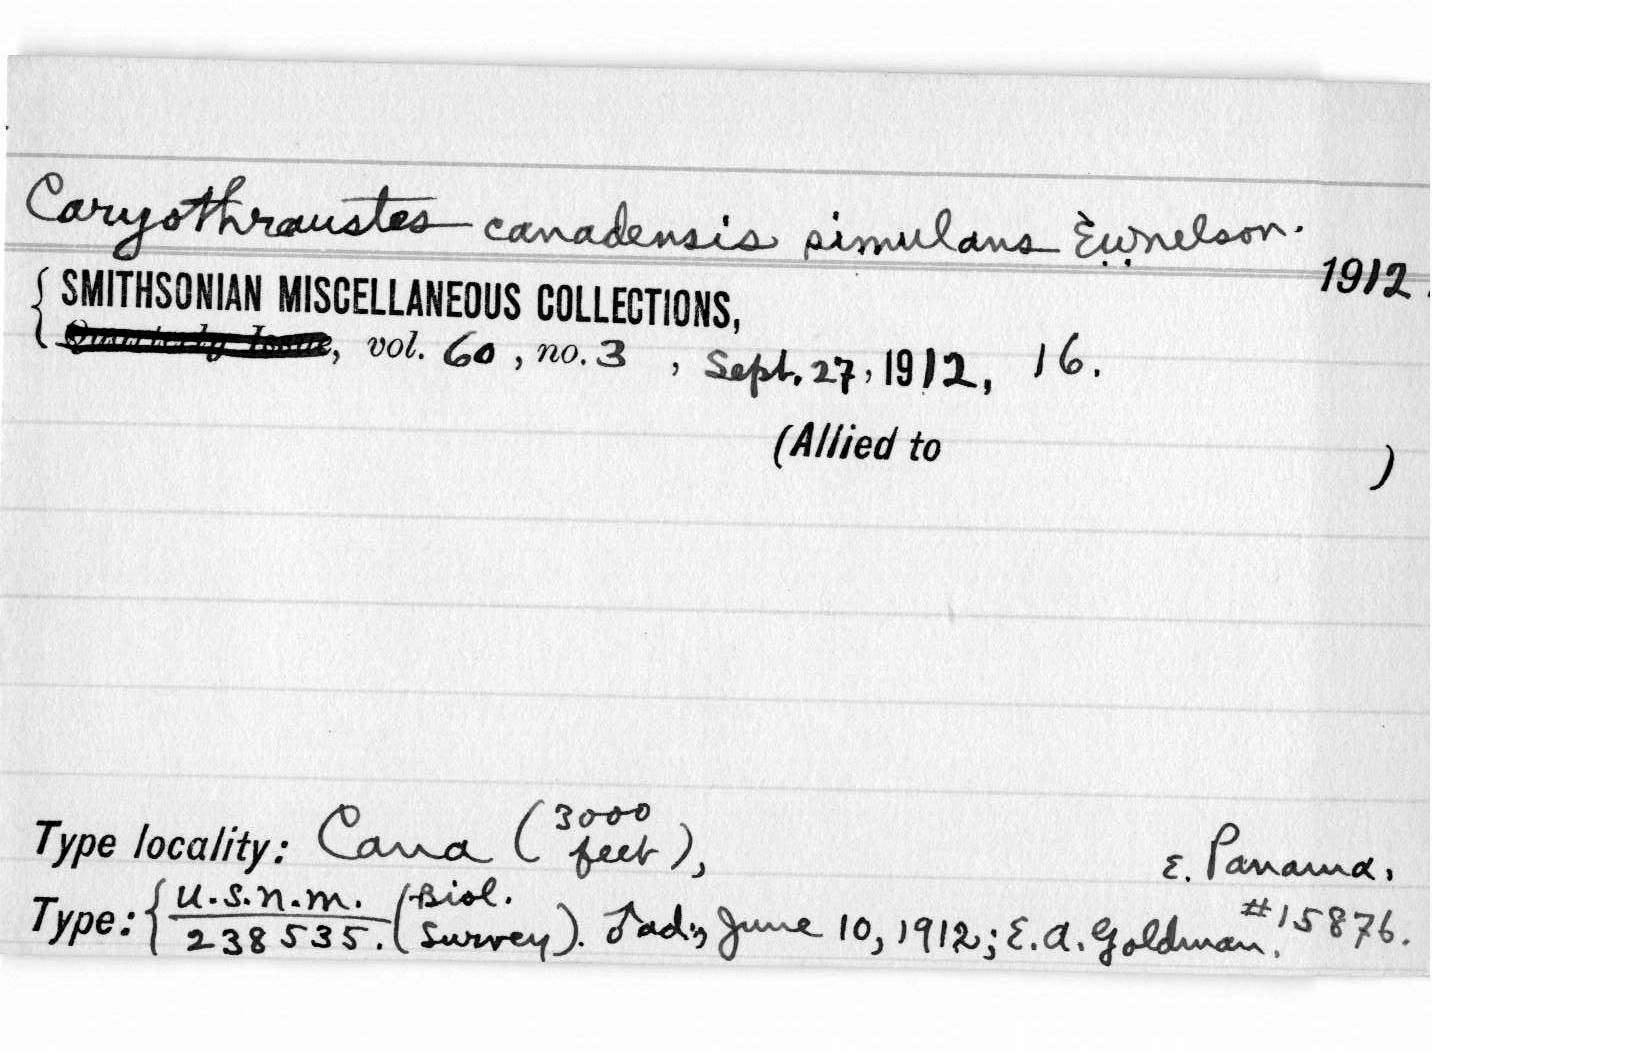 Caryothraustes canadensis simulans E.W.Nelson.
1912.
SMITHSONIAN MISCELLANEOUS COLLECTIONS,
Quarterly Issue, vol. 60, no. 3, Sept. 27, 1912, 16.
(Allied to )
Type locality: Cana (3000 feet), E. Panama.
Type: { U.S.N.M. 238535. (Biol. Survey). ♂ad., June 10, 1912; E.A. Goldman. #15876.